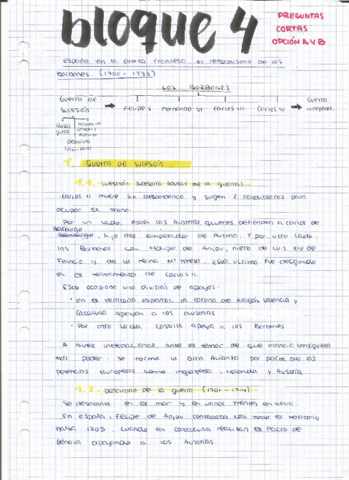 bloque 4
PREGUNTAS
CORTAS
OPCIÓN A y B
España en la órbita francesa: el reformismo de los
Borbones (1700 - 1788)
LOS BORBONES
Guerra de
sucesión → Felipe V Fernando VI Carlos III Carlos IV → Guerra
1. Guerra de sucesión
1.1. Cuestión sucesoria (causas de la guerra)
Carlos II muere sin descendencia y surgen 2 candidatos para
ocupar el trono.
Por un lado, están los Austrias quienes defienden a Carlos de
Habsburgo, hijo del emperador de Austria. Y por otro lado,
los Borbones con Felipe de Anjou, nieto de Luis XIV de
Francia y de la reina Mª Teresa. Este último fue designado
en el testamento de Carlos II.
Esto ocasiona una división de apoyos:
· en el territorio español la corona de Aragón, Valencia y
Cataluña apoyan a los Austrias
· Por otro lado, Castilla apoya a los Borbones
A nivel internacional, ante el temor de que Francia consiguiera
más poder, se forma la Gran Alianza por parte de las
potencias europeas como Inglaterra, Holanda y Austria
1.2. Desarrollo de la guerra (1701 - 1714)
Se desarrolla en el mar y en varios frentes
En España, Felipe de Anjou controlaba casi todo el territorio
hasta 1705, cuando en Cataluña realizan el Pacto de
Génova apoyando a los Austrias.